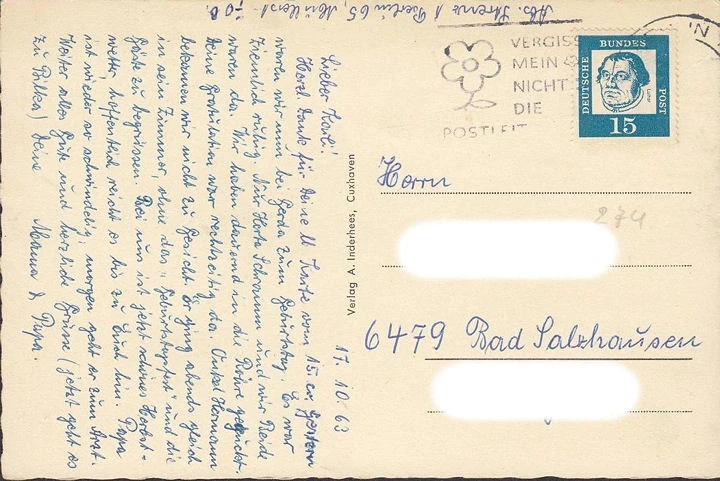 Abs. Strenz 1 Berlin 65, Müllerst. 70 b.
17. 10. 63
Lieber Karli!
Herzl. Dank für Deine lb Karte vom 15. ex. Gestern
waren wir nun bei Gerda zum Geburtstag. Es war
ziemlich ruhig. Nur Herta Schramm und wir Beide
waren da. Wir haben dauernd in die Röhre geguckt.
Deine Gratulation war rechtzeitig da. Onkel Hermann
bekamen wir nicht zu Gesicht. Er ging abends gleich
in sein Zimmer, ohne das "Geburtstagsfest" und die
Gäste zu begrüssen. Bei uns ist jetzt schönes Herbst-
wetter, hoffentlich reicht es bis zu Euch hin. Papa
ist wieder so schwindelig, morgen geht er zum Arzt.
Weiter alles Gute und herzliche Grüsse (jetzt geht es
zu Bilka) Deine Mama & Papa.
Verlag A. Inderhees, Cuxhaven
VERGISS
MEIN
NICHT
DIE
POSTLEIT
DEUTSCHE
BUNDES
POST
Luther
15
Herrn
274
6479 Bad Salzhausen